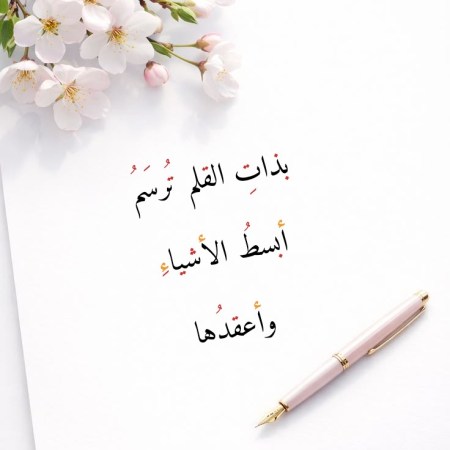 بذاتِ القلم تُرسَمُ
أبسطُ الأشياءِ
وأعقدُها